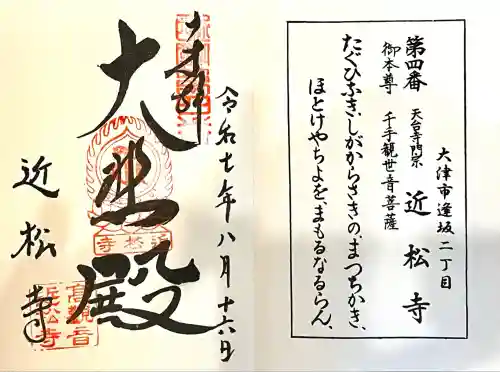 大津市逢坂二丁目
第四番 天台寺門宗 近松寺
御本尊 千手観世音菩薩
たぐひふき、しがからさきの、まつちかき、
ほとけやちよを、まもるなるらん、
奉拝
令和七年八月十六日
大悲殿
近松寺
高観音
近松寺